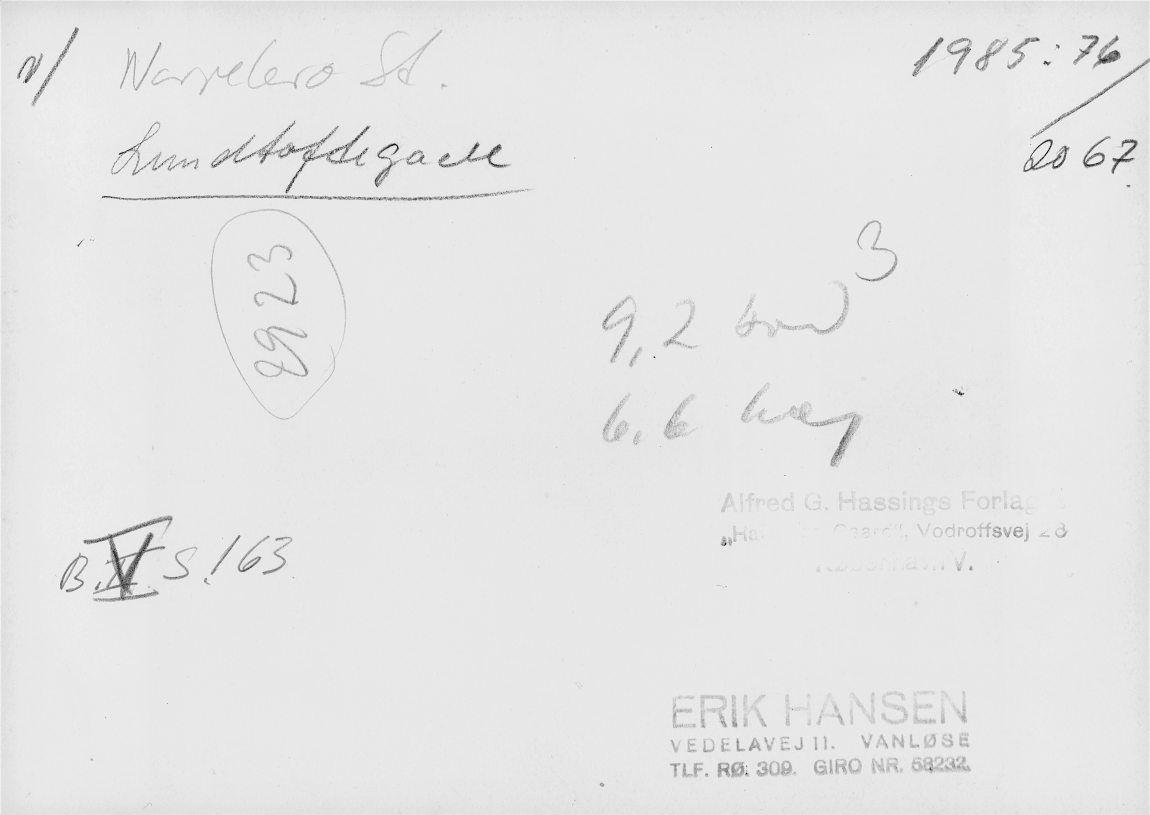 v/ Nørrebro St.
Lundtoftegade
1985:76
/
2067
8923
9,2 bred
3
6.6 høj
B. V S. 163
Alfred G. Hassings Forlag
Vodroffsvej 28
København V.
ERIK HANSEN
VEDELAVEJ 11. VANLØSE
TLF. RØ. 309. GIRO NR. 58232.